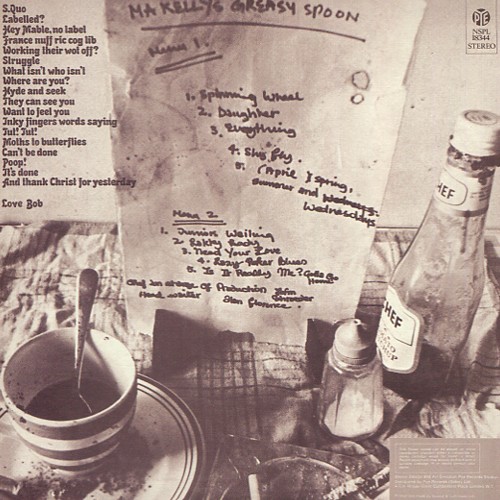 S.Quo
Labelled?
Hey Mable, no label
France nuff ric cog lib
Working their wot off?
Struggle
What isn't who isn't
Where are you?
Hyde and seek
They can see you
Want to feel you
Inky fingers words saying
Tut! Tut!
Moths to butterflies
Can't be done
Poop!
It's done
And thank Christ for yesterday
Love Bob
MA KELLYS GREASY SPOON
Menu 1.
1. Spinning Wheel
2. Daughter
3. Everything
4. Shy Fly.
5. (April) Spring,
Summer and Wednesdays
Wednesdays
Menu 2.
1. Juniors Wailing
2 Lakky Lady
3. Need Your Love
4. Lazy Poker Blues
5. Is It Really Me? Gotta Go
Home
Chef in charge of Production John
Schroeder
Head waiter Alan Florence.
PYE
NSPL
18344
STEREO
HEF
CHEF